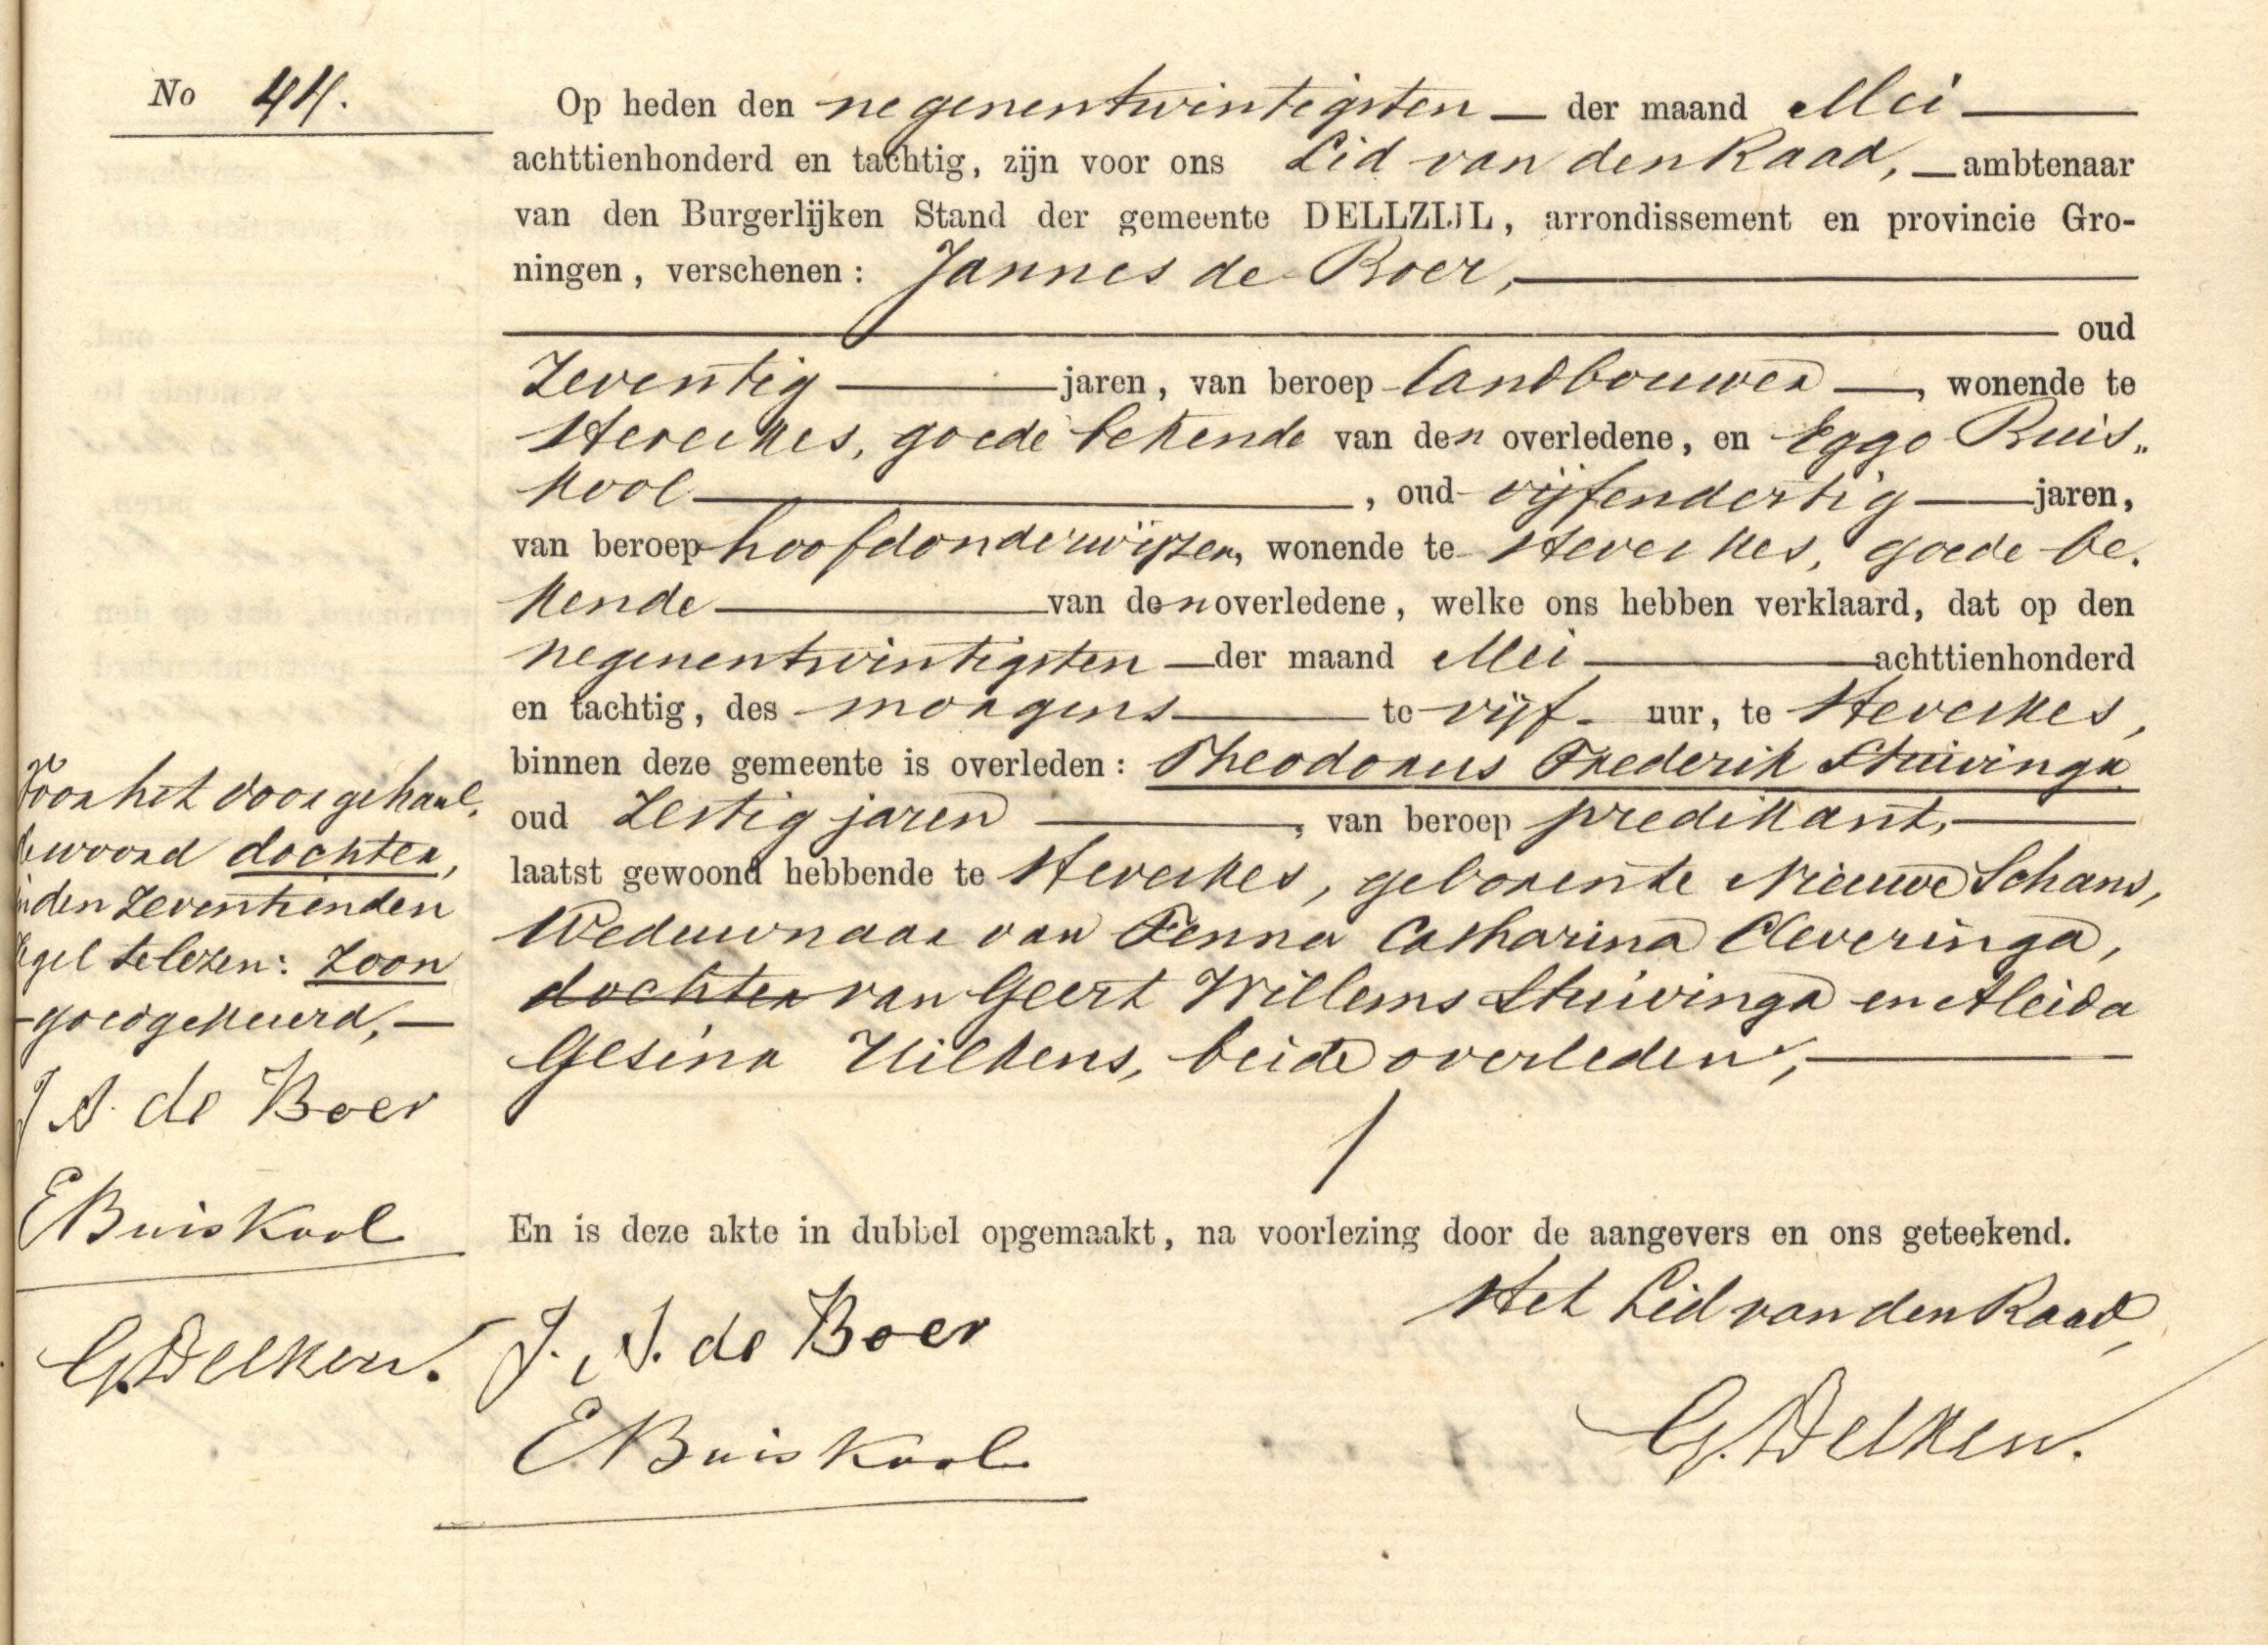 No 44.
Op heden den negenentwintigsten — der maand Mei —
achttienhonderd en tachtig, zijn voor ons Lid van den Raad, — ambtenaar
van den Burgerlijken Stand der gemeente DELLZIJL, arrondissement en provincie Gro-
ningen, verschenen: Jannes de Boer, —
— oud
Zeventig — jaren, van beroep landbouwer —, wonende te
Heveskes, goede bekende van den overledene, en Eggo Buis„
kool —, oud vijfendertig — jaren,
van beroep hoofdonderwijzer, wonende te Heveskes, goede be.
kende — van den overledene, welke ons hebben verklaard, dat op den
negenentwintigsten — der maand Mei — achttienhonderd
en tachtig, des morgens — te vijf - uur, te Heveskes,
binnen deze gemeente is overleden: Theodorus Frederik Stuivinga
oud Zestig jaren —, van beroep predikant, —
laatst gewoond hebbende te Heveskes, geboren te Nieuwe Schans,
Weduwnaar van Fenna Catharina Cleveringa,
dochter van Geert Willems Stuivinga en Aleida
Gesina Uilkens, beide overleden, —
En is deze akte in dubbel opgemaakt, na voorlezing door de aangevers en ons geteekend.
Het Lid van den Raad,
J. S. de Boer
E Buiskool
G. Delken.
Voor het doorgehaal.
woord dochter,
in den zeventienden
regel te lezen: zoon
goedgekeurd, —
J S. de Boer
E Buiskool
G. Delken.